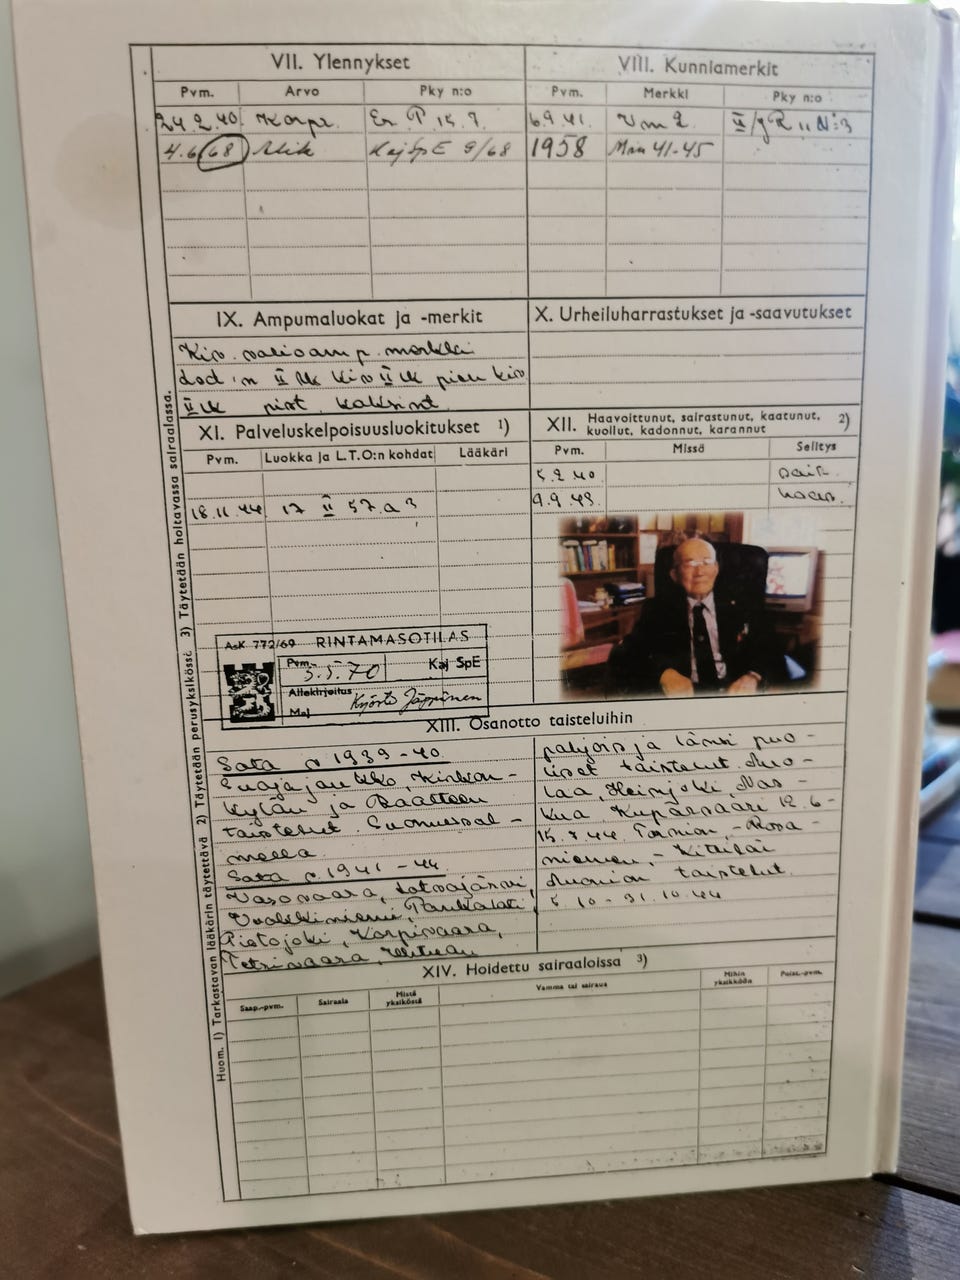 VII. Ylennykset
VIII. Kunniamerkit
Pvm. Arvo Pky n:o
Pvm. Merkki Pky n:o
24.2.40. Korpr. Er. P. 15.
6.9.41. Vm 2. II/JR 11 N:3
4.6.68 Alik KajSpE 9/68
1958 Mm 41-45
IX. Ampumaluokat ja -merkit
X. Urheiluharrastukset ja -saavutukset
Kiv. merkki
II lk kiv II lk pien kiv
II lk pist.
XI. Palveluskelpoisuusluokitukset 1)
XII. Haavoittunut, sairastunut, kaatunut, kuollut, kadonnut, karannut 2)
Pvm. Luokka ja L.T.O:n kohdat Lääkäri
Pvm. Missä Selitys
5.2.40 sair.
18.11.44 17 II 57.a 3
9.9.43. haav.
AsK 772/69 RINTAMASOTILAS
Pvm. 5.5.70 Kaj SpE
Allekirjoitus
Maj Kyösti Jäppinen
XIII. Osanotto taisteluihin
Sota v. 1939-40.
Kiekon-
kylän ja Raatteen
taistelut. Suomussal-
mella.
Sota v. 1941-44
Vasovaara, Latvajärvi,
Pistojoki, Korpivaara,
Tetrivaara, Uhtuan
pohjois ja länsi puo-
liset taistelut. Äuo-
laa, Heinjoki Nos-
kua, Kupärsaari 12.6-
15.7.44 Tornion, -Rova-
niemen, - Kittilän
Muonion taistelut.
5.10-31.10.44
XIV. Hoidettu sairaaloissa 3)
Saap.-pvm. Sairaala Mistä yksiköstä Vamma tai sairaus Mihin yksikköön Poist.-pvm.
Huom. 1) Tarkastavan lääkärin täytettävä 2) Täytetään perusyksikössä. 3) Täytetään hoitavassa sairaalassa.